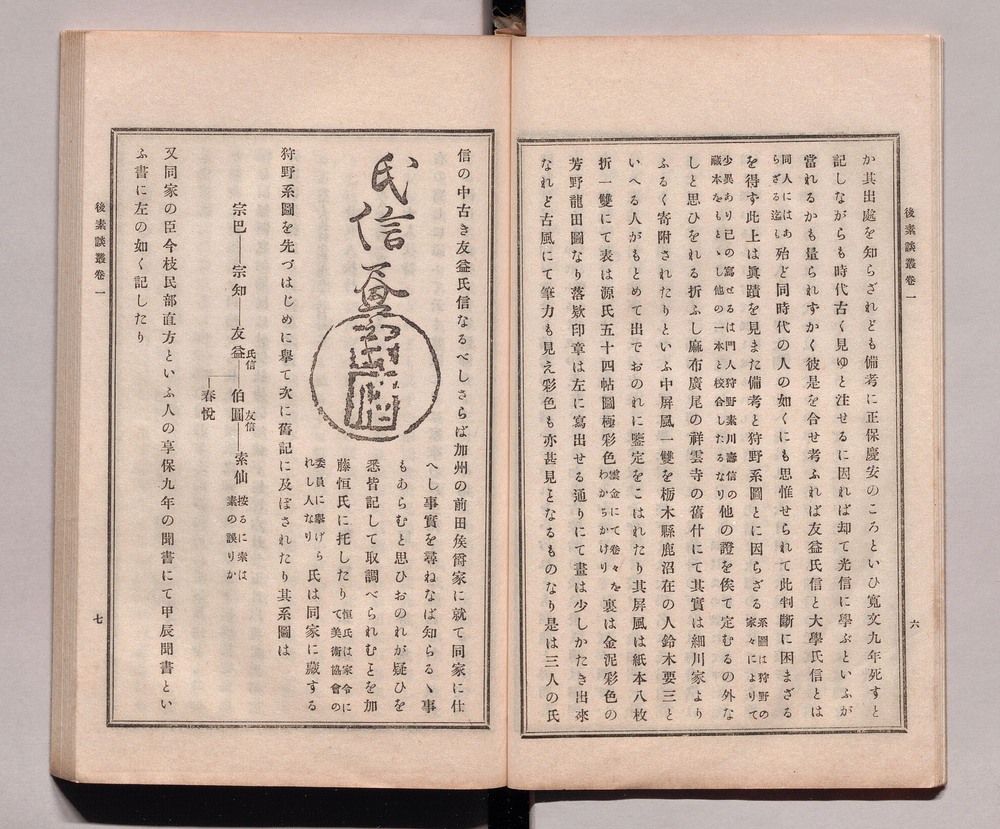 か其出處を知らざれども備考に正保慶安のころといひ寛文九年死すと
記しながらも時代古く見ゆと注せるに因れば却て光信に學ぶといふが
當れるかも量られずかく彼是を合せ考ふれば友益氏信と大學氏信とは
同人にはあらざる迄も殆ど同時代の人の如くにも思惟せられて此判斷に困まざる
を得ず此上は眞蹟を見また備考と狩野系圖とに因らざる系圖は狩野の家々によりて
少異あり已の寫せるは門人狩野素川壽信の藏本をもとゝし他の一本と校合したるなり他の證を俟て定むるの外な
しと思ひをれる折ふし麻布廣尾の祥雲寺の舊什にて其實は細川家より
ふるく寄附されたりといふ中屏風一雙を栃木縣鹿沼在の人鈴木要三と
いへる人がもとめて出でおのれに鑒定をこはれたり其屏風は紙本八枚
折一雙にて表は源氏五十四帖圖極彩色雲金にて卷々をわかちかけり裏は金泥彩色の
芳野龍田圖なり落欵印章は左に寫出せる通りにて畫は少しかたき出來
なれど古風にて筆力も見え彩色も亦甚見となるものなり是は三人の氏
後素談叢卷一
六
信の中古き友益氏信なるべしさらば加州の前田侯爵家に就て同家に仕
へし事實を尋ねなば知らるゝ事
もあらむと思ひおのれが疑ひを
悉皆記して取調べられむことを加
藤恒氏に托したり恒氏は家令にて美術協會の
委員に擧げられし人なり氏は同家に藏する
氏信
狩野系圖を先づはじめに擧て次に舊記に及ぼされたり其系圖は
宗巴―宗知―友益氏信―伯圓友信―素仙按るに素は素の誤りか
春悅
又同家の臣今枝民部直方といふ人の享保九年の聞書にて甲辰聞書とい
ふ書に左の如く記したり
後素談叢卷一
七